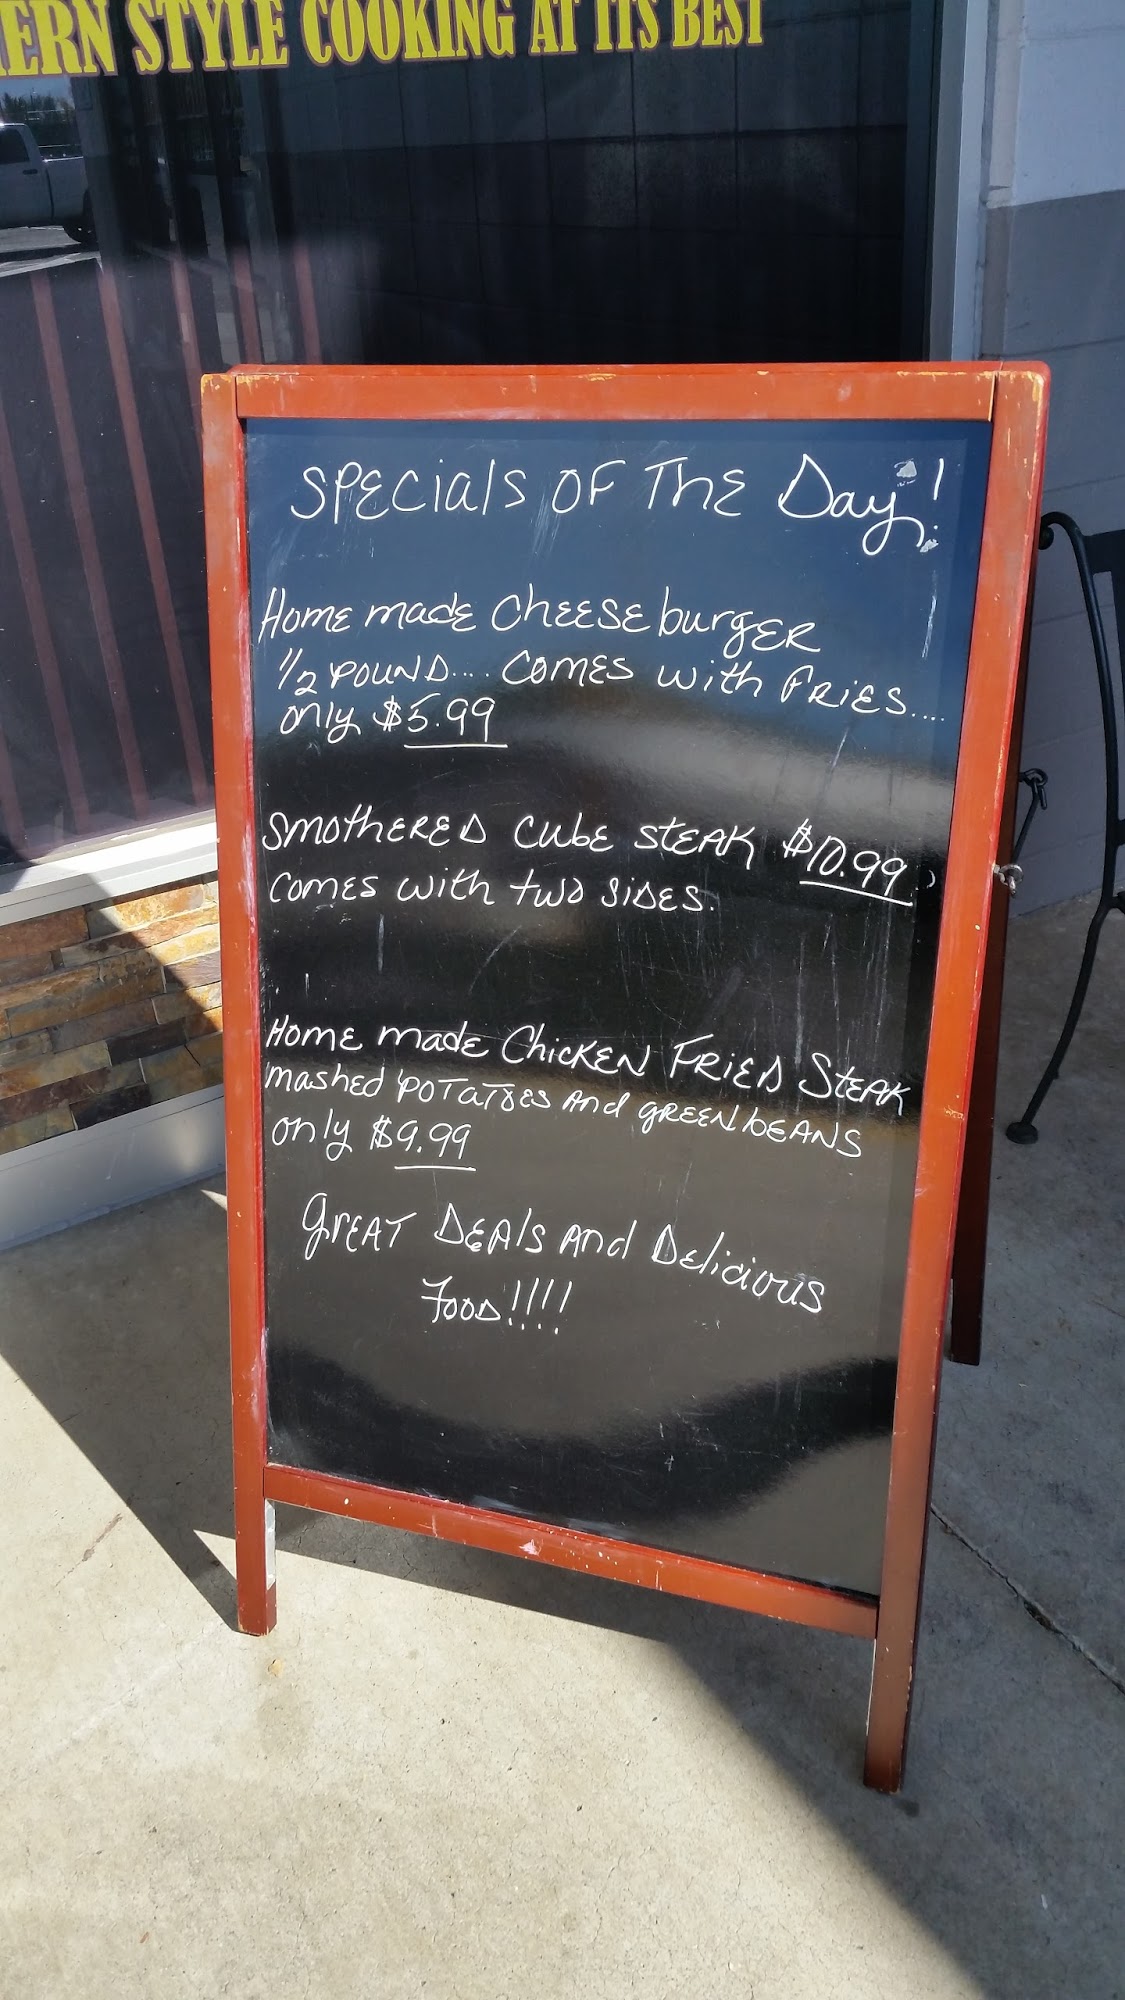 ERN STYLE COOKING AT ITS BEST
SPECIALS OF THE Day!
Home made Cheeseburger
1/2 POUND.... COMES with FRIES....
only $5.99
SMOTHERED CUBE STEAK $10.99,
COMES with two SIDES.
Home made Chicken FRIED STEAK
mashed POTATOES And green beans
only $9.99
Great Deals And Delicious
Food!!!!